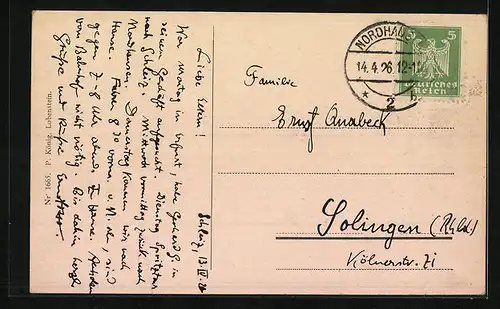 Schleiz, 13. IV. 26
Liebe Eltern!
War Montag in Erfurt, habe Gerhard G. in
seinem Geschäft aufgesucht. Dienstag
nach Schleiz. Mittwoch vormittag zurück nach
Nordhausen. Donnerstag kommen wir nach
Hause. Fahren 8 30 vorm. v. N. ab, sind
gegen 7-8 Uhr abends zu Hause. Abholen
vom Bahnhof nicht nötig. Bis dahin herzl.
Grüße und Küsse
Nr. 1665. P. König, Lobenstein.
NORDHAU
14.4.26.12-1
* 2 h
5 5
Deutsches
Reich
Familie
Ernst Anabeck
Solingen (Rhld.)
Kölnerstr. 71